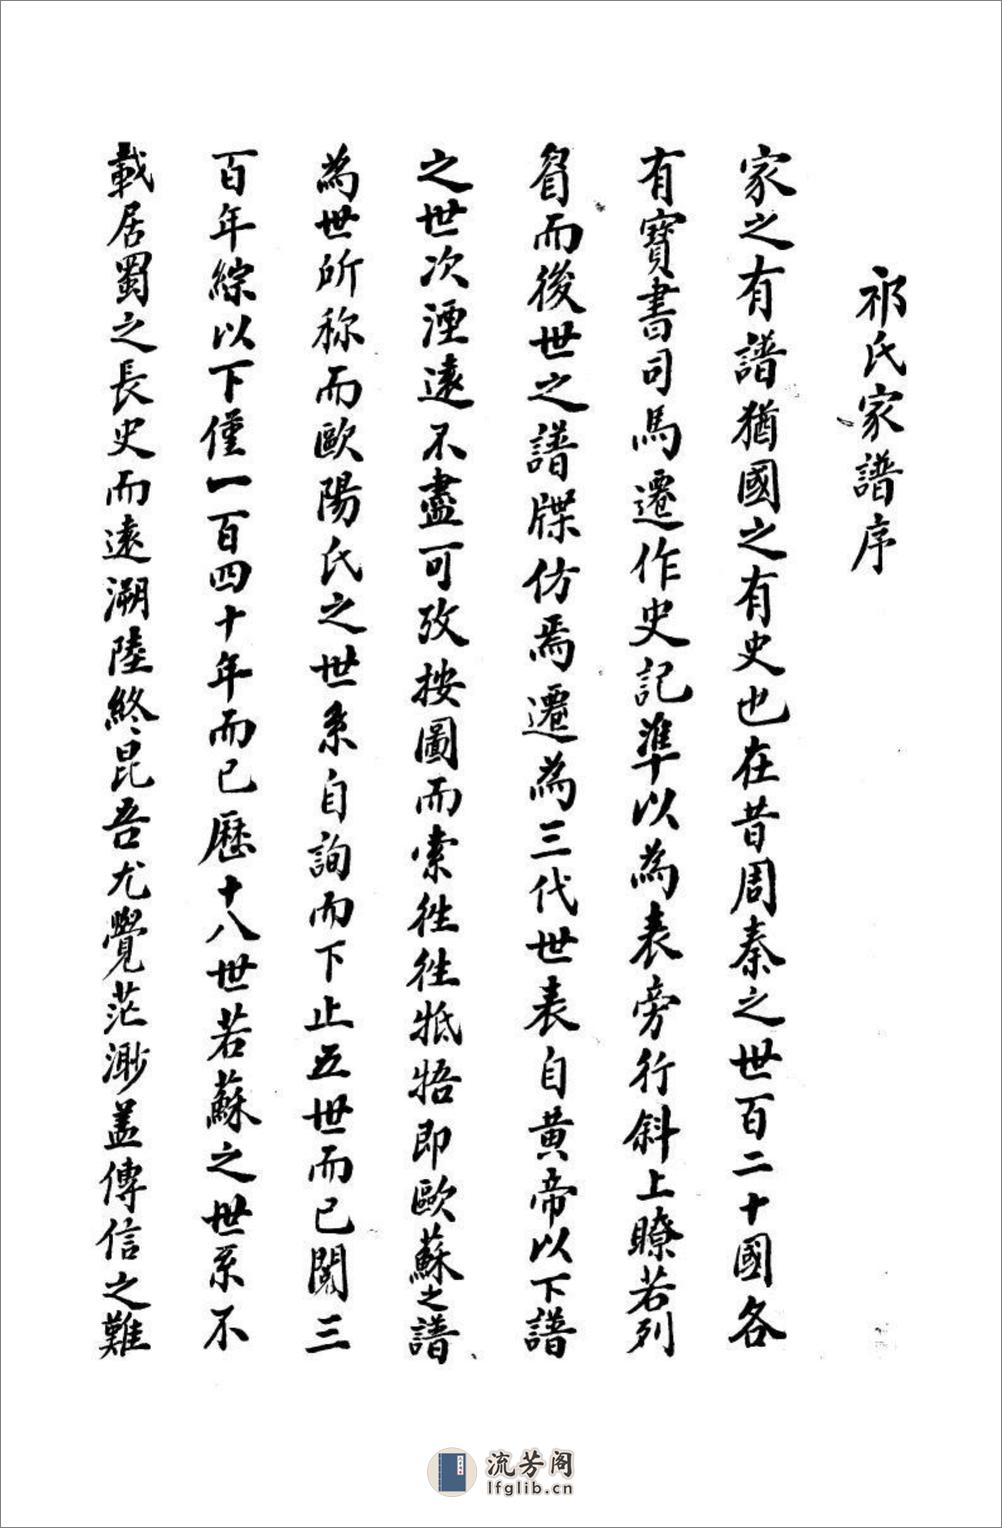 祁氏家譜序
家之有譜猶國之有史也在昔周秦之世百二十國各
有寶書司馬遷作史記準以為表旁行斜上瞭若列
眉而後世之譜牒仿焉遷為三代世表自黃帝以下譜
之世次湮遠不盡可攷按圖而索徃徃牴牾即歐蘇之譜
為世所称而歐陽氏之世系自詢而下止五世而已闕三
百年綜以下僅一百四十年而已歷十八世若蘇之世系不
載居蜀之長史而遠溯陸終昆吾尤覺茫渺蓋傳信之難
流芳阁
lfglib.cn